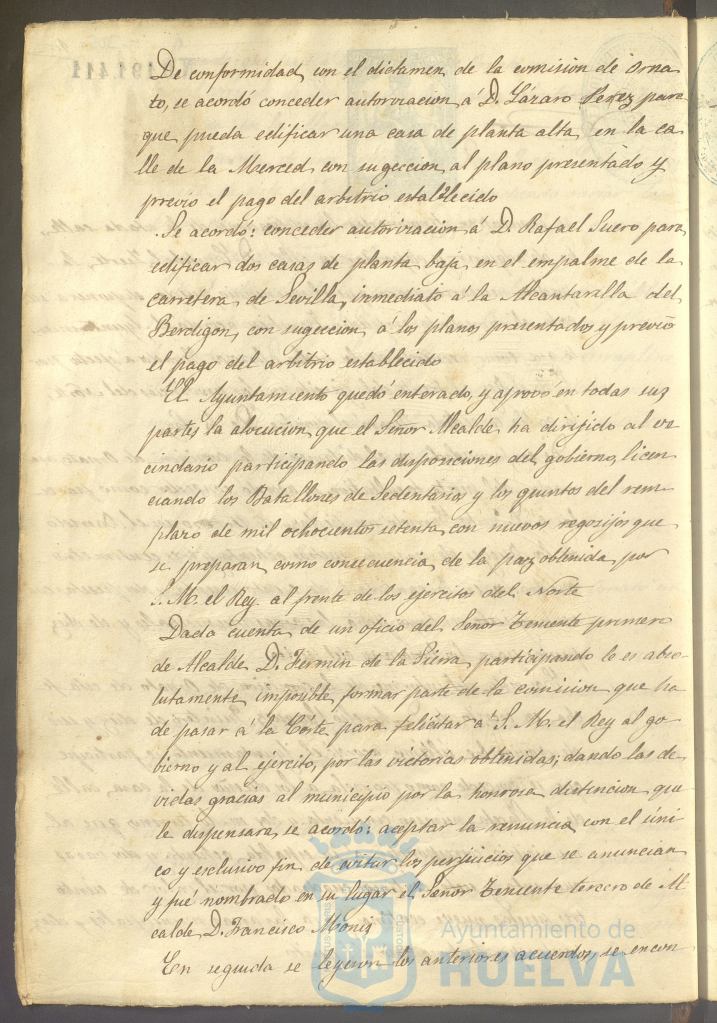 De conformidad con el dictamen de la comision de Orna
to, se acordó conceder autorizacion á D. Lázaro Perez para
que pueda edificar una casa de planta alta en la ca
lle de la Merced, con sugeccion al plano presentado y
previo el pago del arbitrio establecido
Se acordó: conceder autorizacion á D. Rafael Suero para
edificar dos casas de planta baja en el empalme de la
carretera de Sevilla, inmediato á la Alcantarilla del
Berdigon, con sugeccion á los planos presentados y previo
el pago del arbitrio establecido
El Ayuntamiento quedó enterado, y aprovó en todas sus
partes la alocucion que el Señor Alcalde ha dirijido al ve
cindario participando las disposiciones del gobierno, licen
ciando los Batallones de Sedentarios y los quintos del reem
plazo de mil ochocientos setenta, con nuevos regozijos que
se preparan como consecuencia de la paz obtenida por
S. M. el Rey al frente de los ejercitos del Norte
Dada cuenta de un oficio del Señor Teniente primero
de Alcalde D. Fermin de la Sierra, participando le es abso
lutamente imposible formar parte de la comicion que ha
de pasar á la Córte para felicitar á S. M. el Rey al go
bierno y al ejercito, por las victorias obtenidas; dando las de
vidas gracias al municipio por la honrosa distincion que
le dispensara, se acordó: aceptar la renuncia con el úni
co y esclusivo fin de evitar los perjuicios que se anuncian
y fué nombrado en su lugar el Señor Teniente tercero de Al
calde D. Francisco Monis
En seguida se leyeron los anteriores acuerdos, se encon
Ayuntamiento de
HUELVA